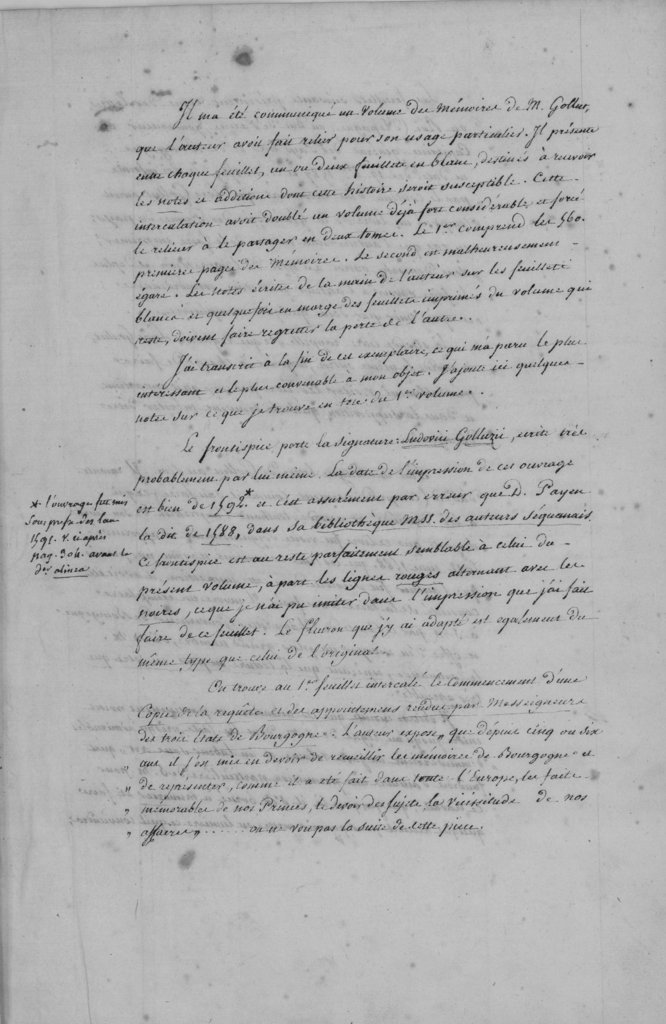 Il m'a été communiqué un volume des Mémoires de M. Gollut,
que l'auteur avoit fait relier pour son usage particulier. Il présente
entre chaque feuillet, un ou deux feuillets en blanc, destinés à recevoir
les notes et additions dont cette histoire seroit susceptible. Cette
intercalation avoit doublé un volume déjà fort considérable et forcé
le relieur à le partager en deux tomes. Le 1er comprend les 560.
premières pages des Mémoires. Le second est malheureusement
égaré. Les notes écrites de la main de l'auteur sur les feuillets
blancs et quelquefois en marge des feuillets imprimés du volume qui
reste, doivent faire regretter la perte de l'autre.
J'ai transcrit à la fin de cet exemplaire, ce qui m'a paru le plus
intéressant et le plus convenable à mon objet. J'ajoute ici quelques
notes sur ce que je trouve en tête du 1er volume.
Le frontispice porte la signature: Ludovici Golluzii, écrite très
probablement par lui même. La date de l'impression de cet ouvrage
est bien de 1592* et c'est assurément par erreur que D. Payen
la dit de 1588, dans sa bibliothèque MSS. des auteurs séquanais.
Ce frontispice est au reste parfaitement semblable à celui du
présent volume, à part les lignes rouges alternant avec les
noires, ce que je n'ai pu imiter dans l'impression que j'ai fait
faire de ce feuillet. Le fleuron que j'y ai adapté est également du
même type que celui de l'original.
On trouve au 1er feuillet intercalé le commencement d'une
Copie de la requête et des appointemens rendus par Messeigneurs
des trois Etats de Bourgogne. L'auteur expose „ que dépuis cinq ou six
„ ans il s'est mis en devoir de recueillir les mémoires de Bourgogne et
„ de réprésenter, comme il a été fait dans toute l'Europe, les faits
„ mémorables de nos Princes, le devoir des sujets la vicissitude de nos
„ affaires „ ...... on ne voit pas la suite de cette pièce.
* l'ouvrage fut mis
sous presse dès l'an
1591. V. ci après
pag. 304. avant le
der alinea